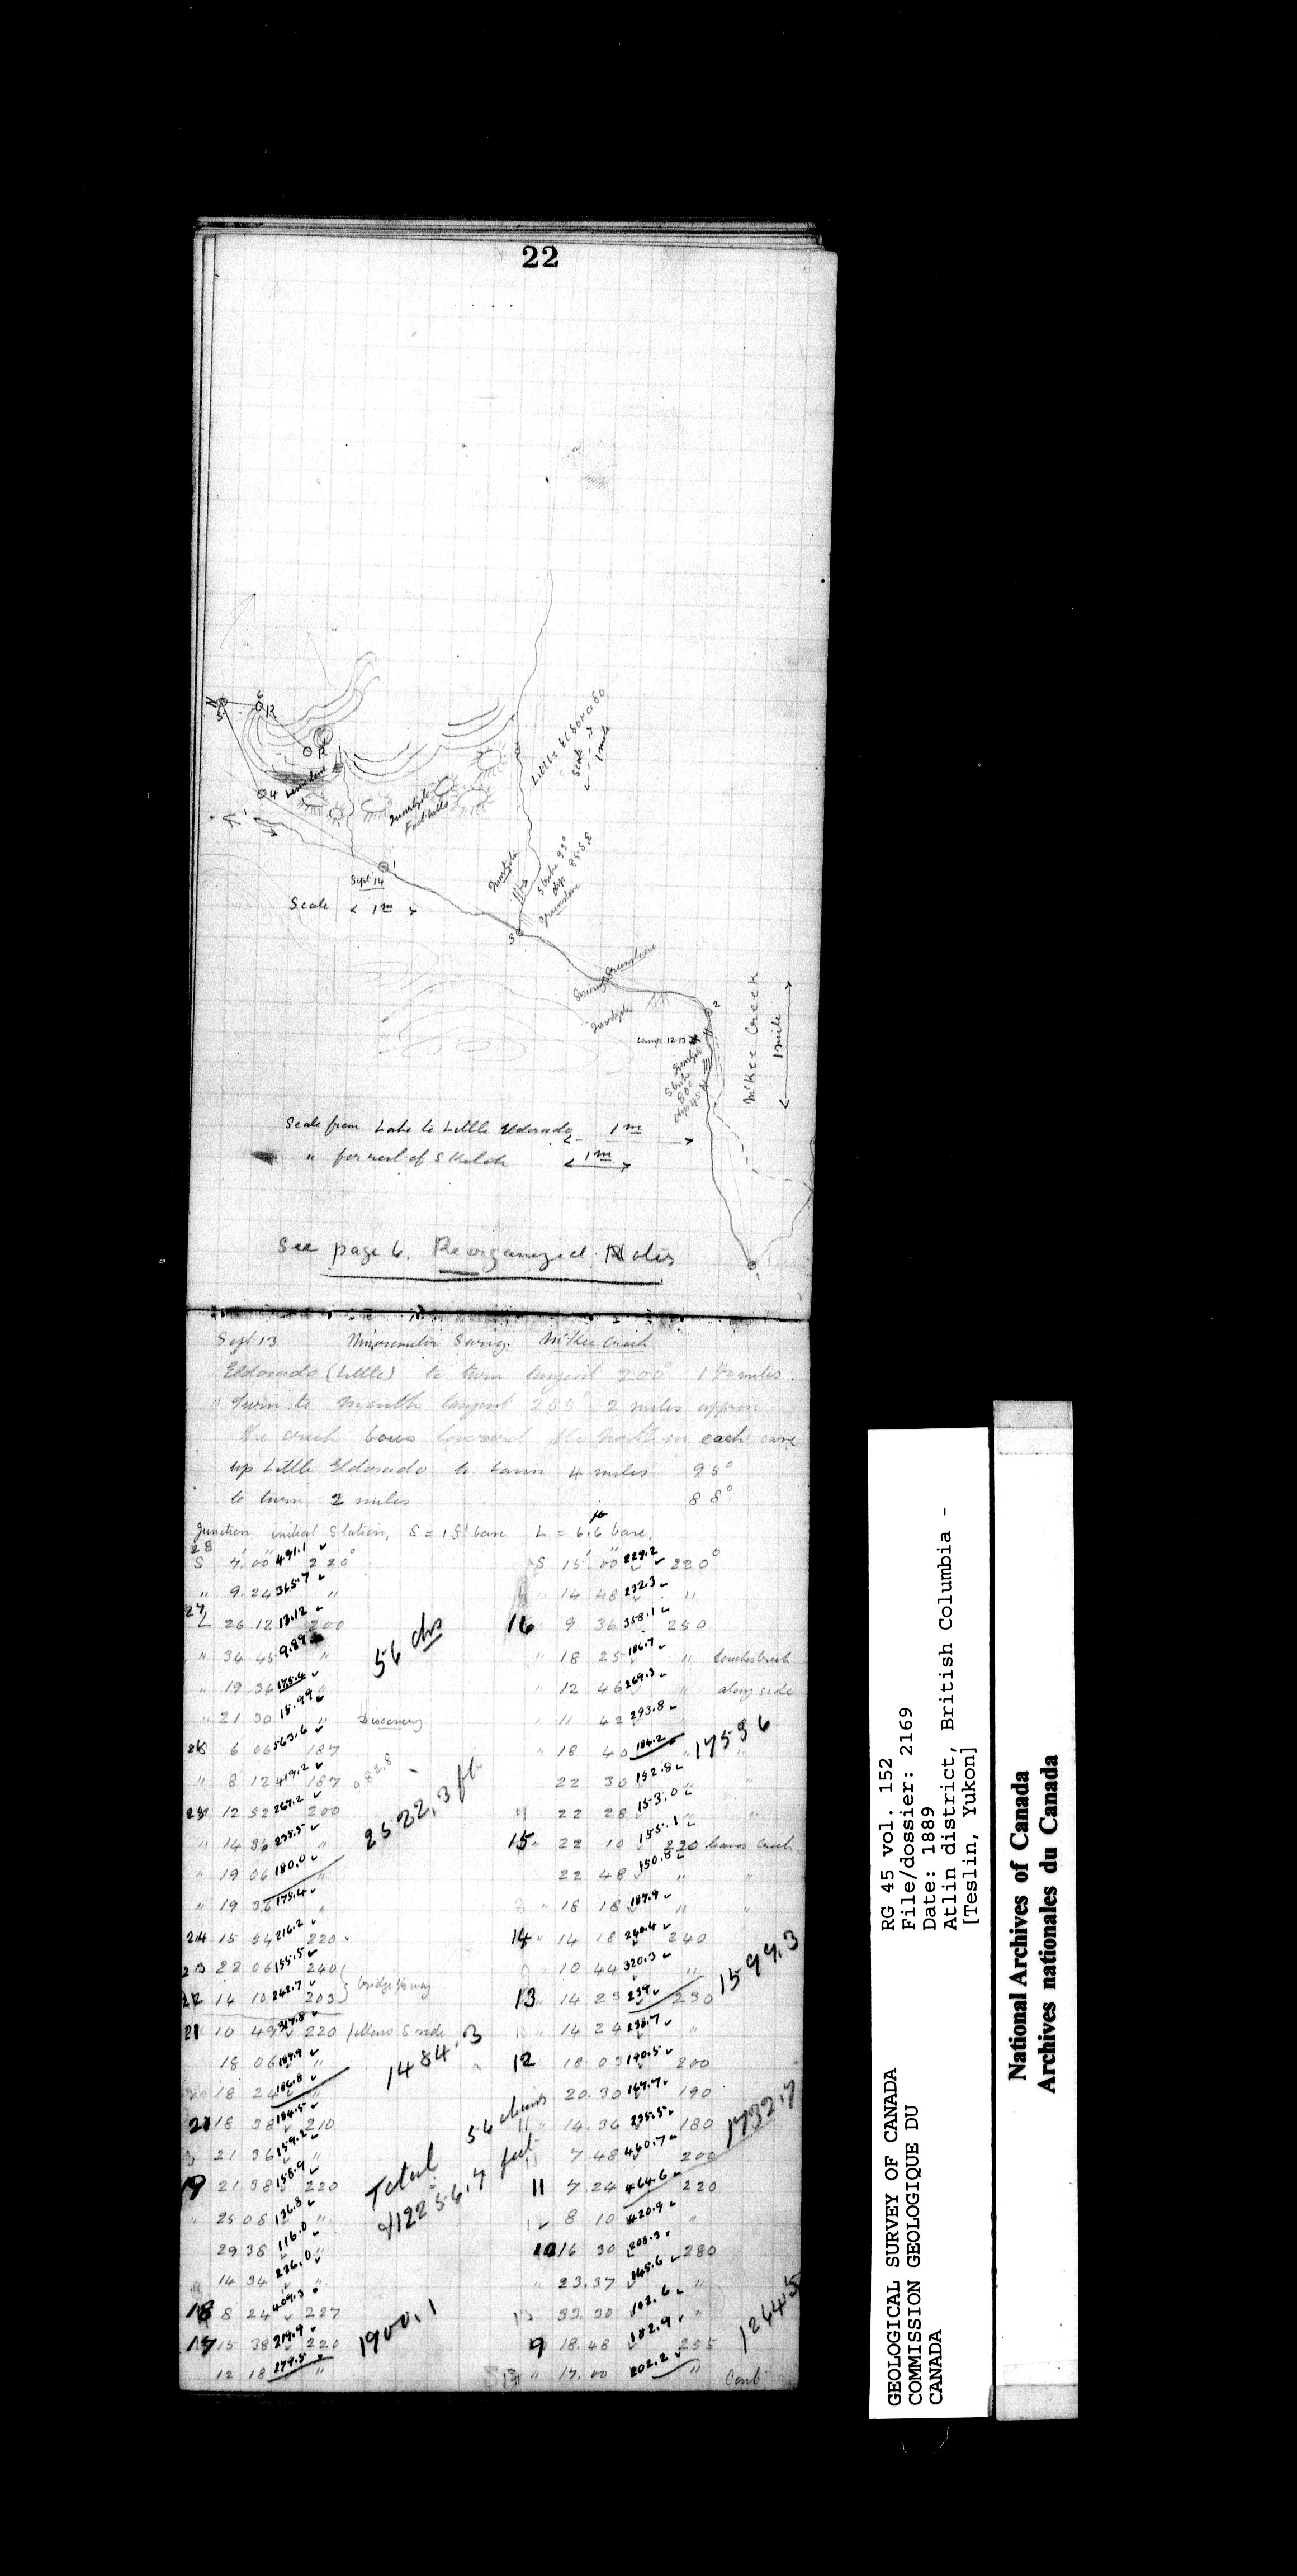 22
5
6
R
R
Limestone
4
Quartzite
Foothills
Little Eldorado
Scale
1 mile
1
Sept 14
Scale 1 m
Quartzite
Strike 93°
dip 85 S.E
Greenstone
3
Greenstone
Quartzite
2
Camp 12-13
Strike
McKee Creek
1 mile
Scale from Lake to Little Eldorado 1 m
" for rest of Sketch 1 m
See page 6. Reorganized Notes
Sept 13 Micrometer Survey McKee Creek
Eldorado (Little) to turn tangent 200° 1 1/2 miles
Turn to mouth tangent 2 miles approx
the creek bows toward the north in each case
up Little Eldorado to turn 4 miles 95°
to turn 2 miles 88°
Junction initial Station, S = 1 ft base L = 6.6 ft base,
28
S 7 00 491.1 220°
" 9.24 365.7 "
27
L 26.12 13.12 200
" 34 45 9.89
" 19 36 175.4
" 21 30 15.99 " Discovery
26 6 06 563.6 187
" 8 12 419.2 187 982.8
25 12 52 267.2 200
" 14 36 235.5 "
" 19 06 180.0 "
" 19 36 175.4 "
24 15 54 216.2 220
23 22 06 155.5 240
22 14 10 242.7 203
21 10 49 317.8 220 follows S side
18 06 189.9 "
18 24 186.8 "
20 18 38 184.5 210
21 36 159.2 "
19 21 38 158.9 220
" 25 08 136.8 "
29 38 116.0 "
14 34 236.0 "
18 8 24 409.3 227
17 15 38 219.9 220
12 18 279.5 "
56 chs
2522.3 ft
1484.3
56 chains
Total
feet
1900.1
S 15 00 229.2 220°
" 14 48 232.3 "
16 9 36 358.1 250
" 18 25 186.7 " touches creek
" 12 46 269.3 " along side
" 11 42 293.8 "
" 18 40 184.2 " "
22 30 152.8 " "
22 28 153.0 " "
15 " 22 10 155.1 220 leaves Creek
22 48 150.8 " "
" 18 18 187.9 " "
14 " 14 18 240.4 240
10 44 320.3 "
13 14 23 239 230
" 14 24 238.7 "
12 18 03 190.5 200
20.30 167.7 190
" 14.36 235.5 180
7.48 440.7 200
11 7.24 464.6 220
8 10 420.9 "
10 16 30 208.3 280
" 23.37 145.6 "
33.30 102.6 "
9 18.48 182.9 255
" 17.00 202.2 "
1759 6
1599.3
1732.7
1264.5
Cont
GEOLOGICAL SURVEY OF CANADA
COMMISSION GEOLOGIQUE DU
CANADA
RG 45 vol. 152
File/dossier: 2169
Date: 1889
Atlin district, British Columbia -
[Teslin, Yukon]
National Archives of Canada
Archives nationales du Canada